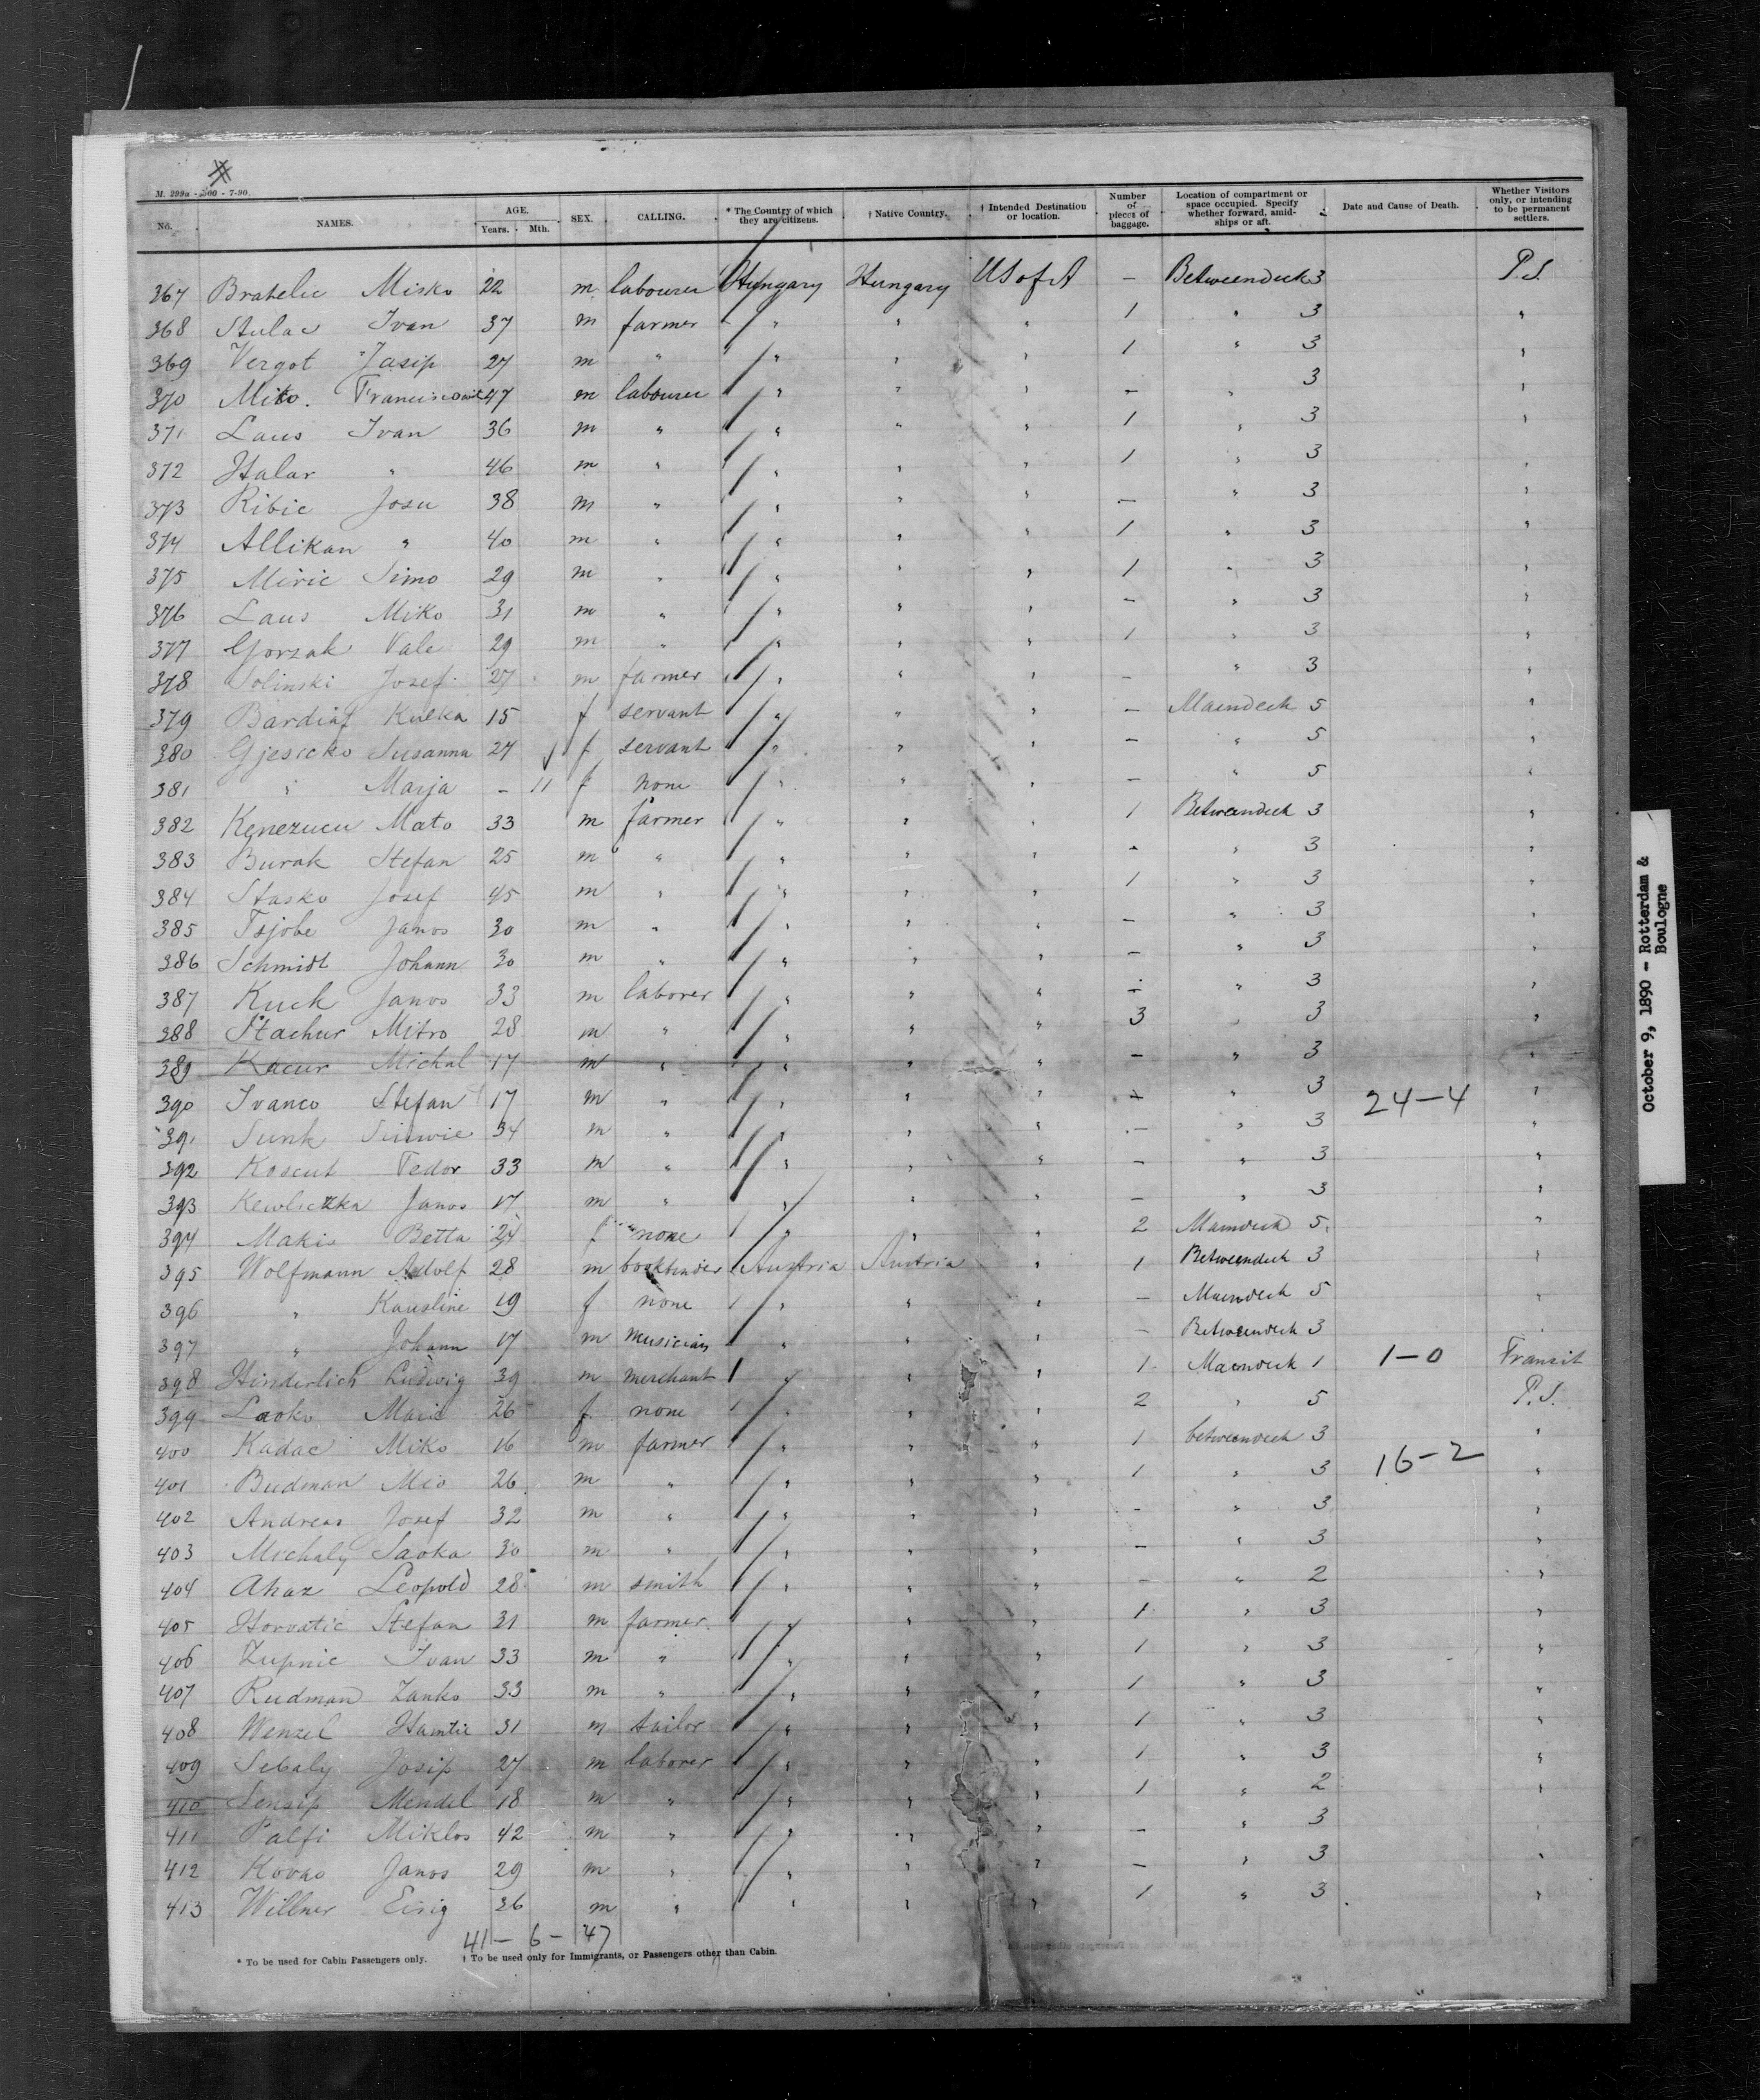 M. 299a - 500 - 7-90.
No. NAMES. AGE. Years. Mth. SEX. CALLING. * The Country of which they are citizens. † Native Country. † Intended Destination or location. Number of pieces of baggage. Location of compartment or space occupied. Specify whether forward, amidships or aft. Date and Cause of Death. Whether Visitors only, or intending to be permanent settlers.
367 Bratelic Misko 22 m labourer Hungary Hungary US of A — Betweendeck 3 P.S.
368 Stulac Ivan 37 m farmer " " " 1 " 3 "
369 Vergot Jasip 27 m " " " " 1 " 3 "
370 Miko. 47 m labourer " " " — " 3 "
371 Laus Ivan 36 m " " " " 1 " 3 "
372 Halar " 46 m " " " " 1 " 3 "
373 Ribic Josu 38 m " " " " — " 3 "
374 Allikan " 40 m " " " " 1 " 3 "
375 Miric Simo 29 m " " " " 1 " 3 "
376 Laus Miko 31 m " " " " — " 3 "
377 Gorzak Vale 29 m " " " " 1 " 3 "
378 Solinski Josef 27 m farmer " " " — " 3 "
379 Kulka 15 f servant " " " — Maindeck 5 "
380 Gjesicko Susanna 27 f servant " " " — " 5 "
381 " Marja — 11 f none " " " — " 5 "
382 Kenezucu Mato 33 m farmer " " " 1 Betweendeck 3 "
383 Burak Stefan 25 m " " " " — " 3 "
384 Stasko Josef 45 m " " " " 1 " 3 "
385 Tsjobe Janos 30 m " " " " — " 3 "
386 Schmidt Johann 30 m " " " " — " 3 "
387 Kuck Janos 33 m laborer " " " — " 3 "
388 Stachur Mitro 28 m " " " " 3 " 3 "
389 Kacur Michal 17 m " " " " — " 3 "
390 Ivanco Stefan 17 m " " " " — " 3 24-4 "
391 Sunk 34 m " " " " — " 3 "
392 Koscut Fedor 33 m " " " " — " 3 "
393 Kewliczka Janos 17 m " " " " — " 3 "
394 Makis Betta 24 f none " " " 2 Maindeck 5 "
395 Wolfmann Adolf 28 m bookbinder Austria Austria " 1 Betweendeck 3 "
396 " Kausline 19 f none " " " — Maindeck 5 "
397 " Johann 17 m musician " " " — Betweendeck 3 "
398 Hinderlich Ludwig 39 m merchant " " " 1 Maindeck 1 1-0 Transit
399 Laoko Marie 26 f none " " " 2 " 5 P.S.
400 Kadac Miko 16 m farmer " " " 1 betweendeck 3 "
401 Budman Mio 26 m " " " " 1 " 3 16-2 "
402 Andreas Josef 32 m " " " " — " 3 "
403 Michaly Saoka 30 m " " " " — " 3 "
404 Ahaz Leopold 28 m smith " " " — " 2 "
405 Horvatic Stefan 31 m farmer " " " 1 " 3 "
406 Zupnic Ivan 33 m " " " " 1 " 3 "
407 Rudman Janko 33 m " " " " 1 " 3 "
408 Wenzel 31 m tailor " " " 1 " 3 "
409 Sebaly Josip 27 m laborer " " " 1 " 3 "
410 Sensip Mendel 18 m " " " " 1 " 2 "
411 Palfi Miklos 42 m " " " " — " 3
412 Kovac Janos 29 m " " " " — " 3 "
413 Willner Eisig 26 m " " " " 1 " 3 "
41-6-47
* To be used for Cabin Passengers only. † To be used only for Immigrants, or Passengers other than Cabin.
October 9, 1890 - Rotterdam &
Boulogne